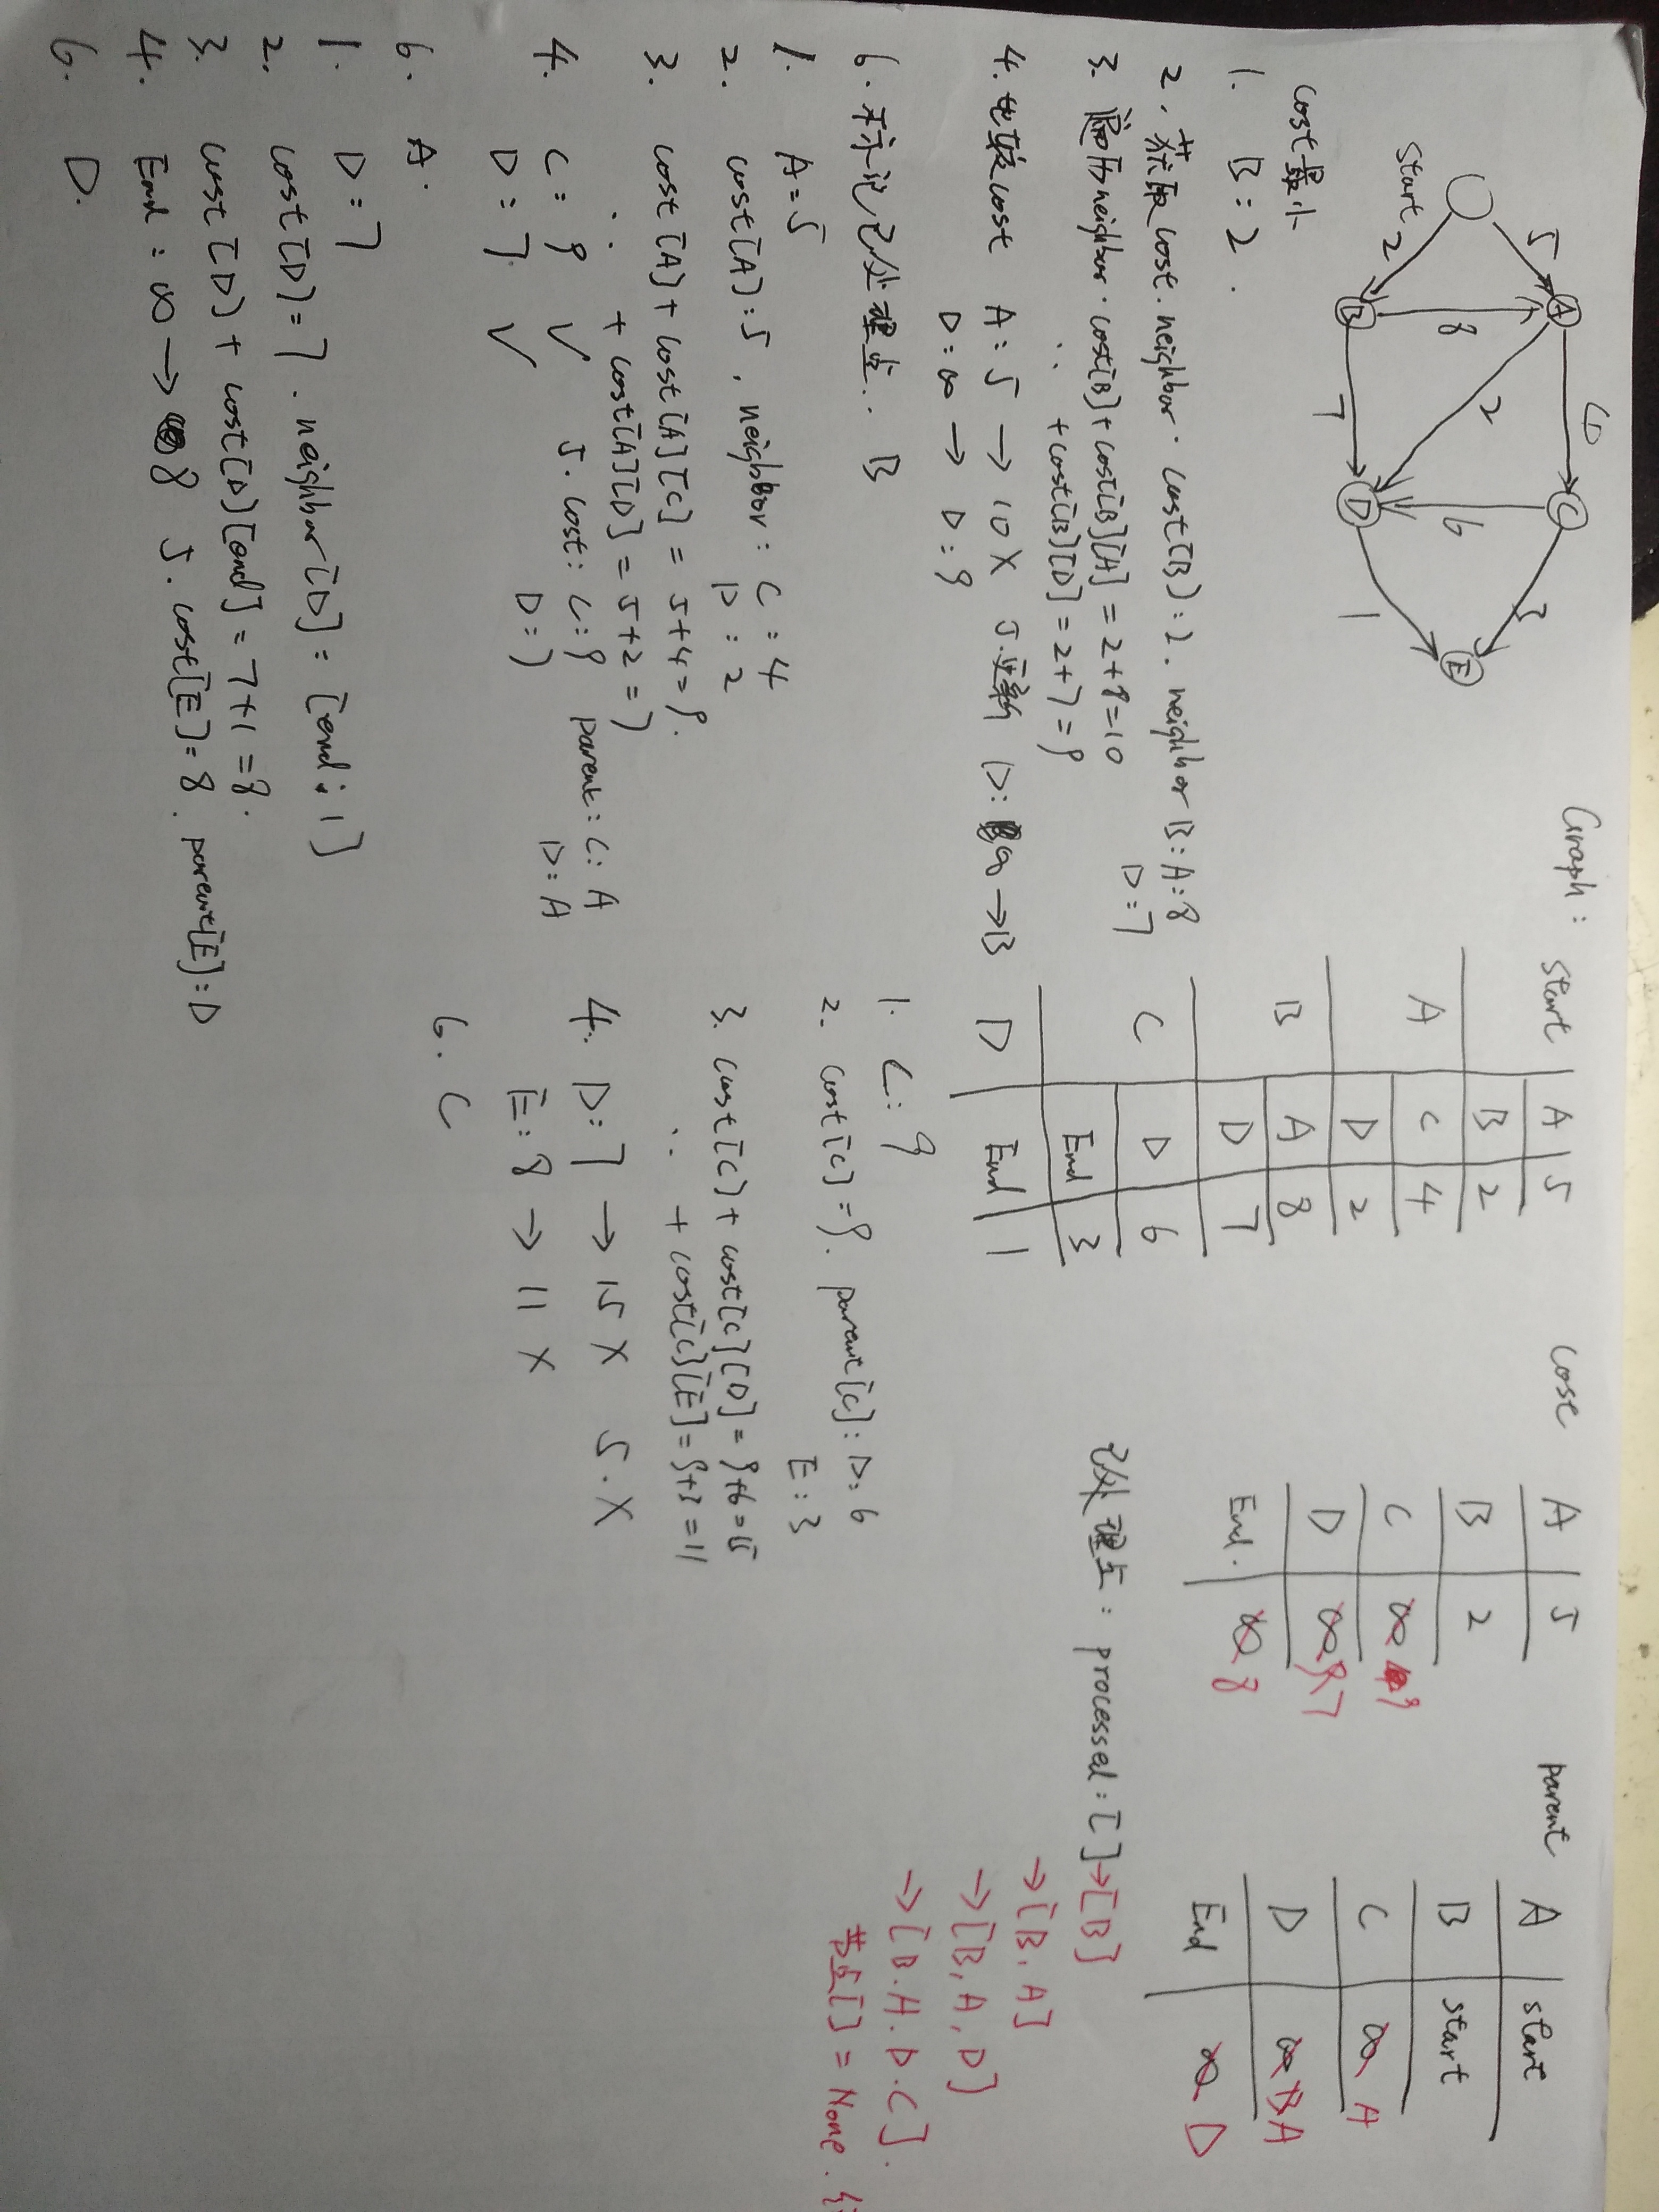 Graph:
start A 5
B 2
A C 4
D 2
B A 8
D 7
C D 6
End 3
D End 1
cost
A 5
B 2
C ∞ 9
D ∞ 9 7
End. ∞ 8
parent
A start
B start
C ∞ A
D ∞ B A
End ∞ D
已处理点: processed: [ ] → [B]
→ [B, A]
→ [B, A, D]
→ [B. A. D. C].
节点[] = None.
start
5
2
A
B
8
4
2
7
C
D
6
3
1
E
cost最小
1. B: 2.
2. 获取cost. neighbor. cost[B]: 2. neighbor B: A: 8
D: 7
3. 遍历neighbor. cost[B] + cost[B][A] = 2+8=10
∵ + cost[B][D] = 2+7=9
4. 比较cost A: 5 → 10 X 5. 更新 D: ∞ → B
D: ∞ → D: 9
6. 标记已处理点. B
1. A=5
2. cost[A]: 5, neighbor: C: 4
D: 2
3. cost[A] + cost[A][C] = 5+4=9.
∵ + cost[A][D] = 5+2=7
4. C: 9 √ 5. cost: C: 9 parent: C: A
D: 7. √ D: 7 D: A
6. A.
1. D: 7
2. cost[D]=7. neighbor[D] = [end: 1]
3. cost[D] + cost[D][end] = 7+1=8.
4. End: ∞ → 8 5. cost[E] = 8. parent[E]: D
6. D.
1. C: 9
2. cost[C] = 9. parent[C]: D: 6
E: 3
3. cost[C] + cost[C][D] = 9+6=15
∵ + cost[C][E] = 9+3=11
4. D: 7 → 15 X 5. X
E: 8 → 11 X
6. C